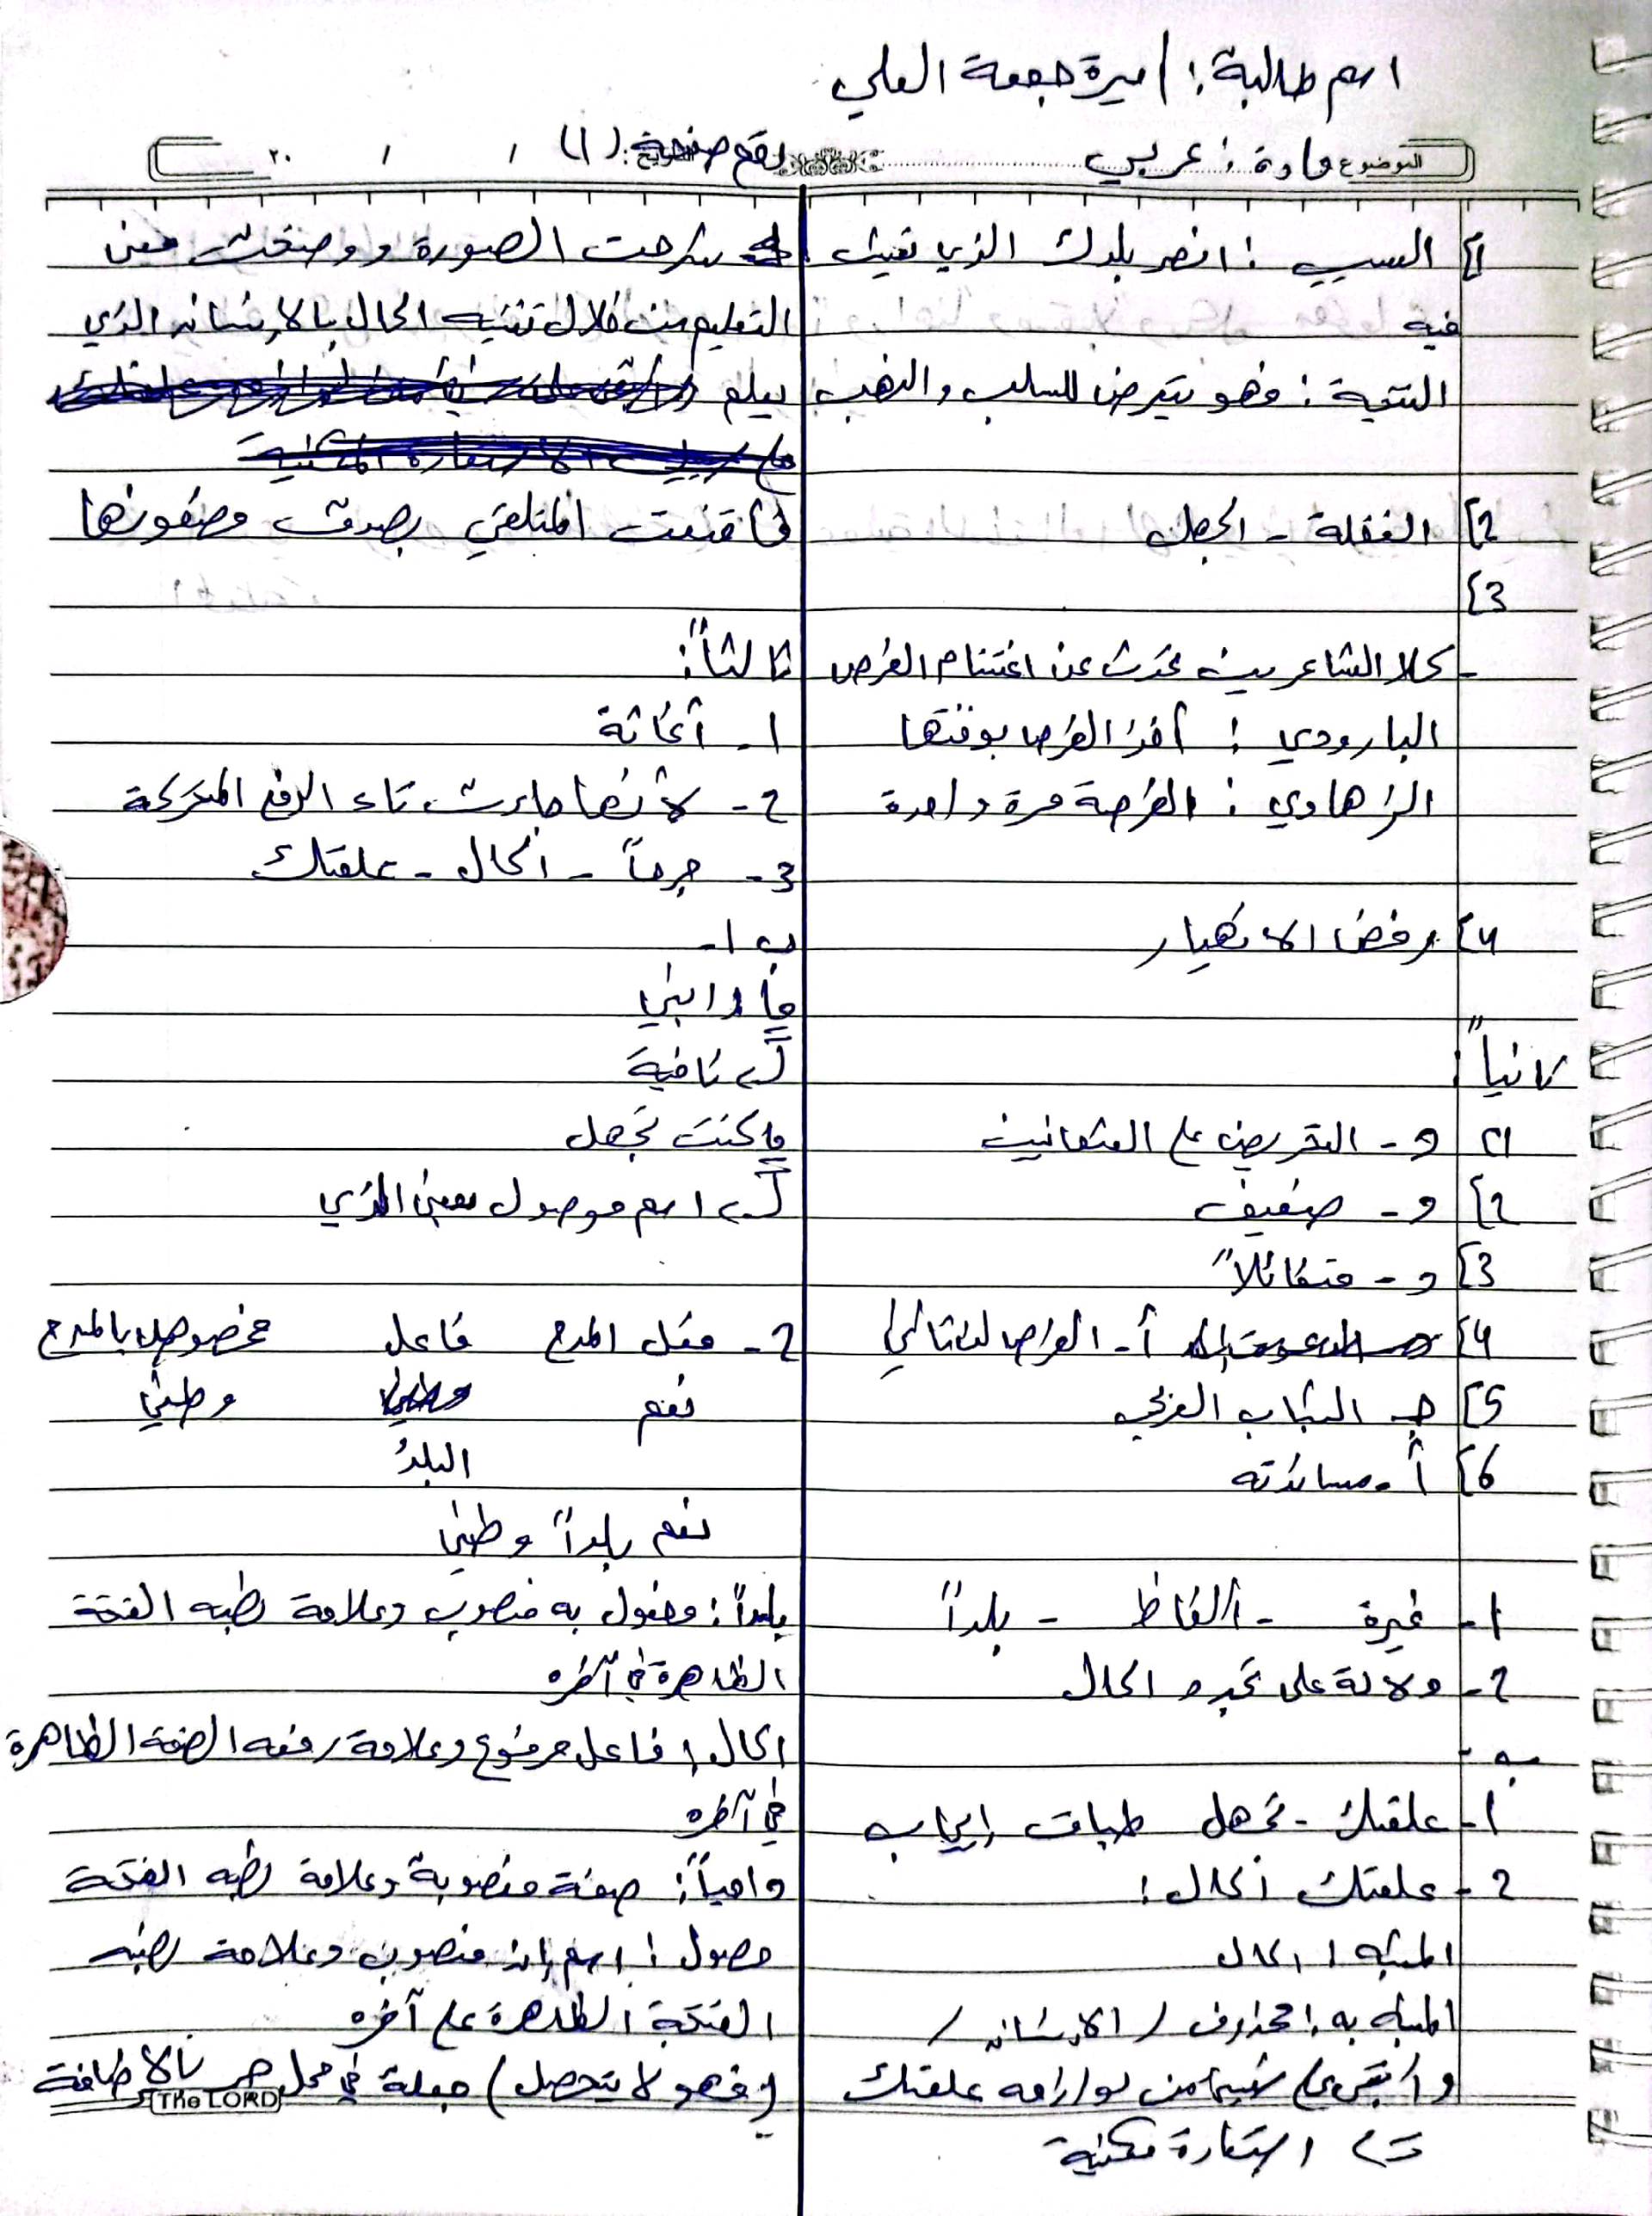 اسم طالبة: أميرة جمعة العلي
الموضوع مادة: عربي
رقم صفحة: (١)
/ / ٢٠
1] السبب: انصر بلدك الذي تعيش
فيه
النتيجة: فهو يتعرض للسلب والنهب
2] الغفلة - الجهل
3]
- كلا الشاعرين تحدث عن اغتنام الفرص
البارودي: أخذ الفرص بوقتها
الزهاوي: الفرصة مرة واحدة
4] رفض الانهيار
ثانياً:
1] د - التحريض على العثمانيين
2] د - ضعيف
3] د - متفائلاً
4] أ -
5] ج - الشباب العربي
6] أ - مساندته
1 - غيرة - ألفاظ - بلداً
2 - دلالة على تجدد الحال
ب -
1 - علمتك - تجهل طباق إيجاب
2 - علمتك الحال:
المشبه: الحال
المشبه به: محذوف / الإنسان /
وأبقى على شيئاً من لوازمه علمتك
=> استعارة مكنية
شرحت الصورة ووضحت معنى
التعليم من خلال تشبيه الحال بالإنسان الذي
يعلم
فأقنعت المتلقي بصدق مضمونها
ثالثاً:
1 - أغاثة
2 - لأنها جاءت تاء الرفع المتحركة
3 - جرماً - الحال - علمتك
ب 1 -
ما رابني
نافية
ما كنت تجهل
اسم موصول بمعنى الذي
2 - فعل المدح فاعل مخصوص بالمدح
نعم وطني
البلدُ
نعم بلداً وطني
بلداً: مفعول به منصوب وعلامة نصبه الفتحة
الظاهرة في آخره
الحال: فاعل مرفوع وعلامة رفعه الضمة الظاهرة
في آخره
واهياً: صفة منصوبة وعلامة نصبه الفتحة
حصول: اسم إن منصوب وعلامة نصبه
الفتحة الظاهرة على آخره
(فهو لا يتحصل) جملة في محل جر بالإضافة
The LORD